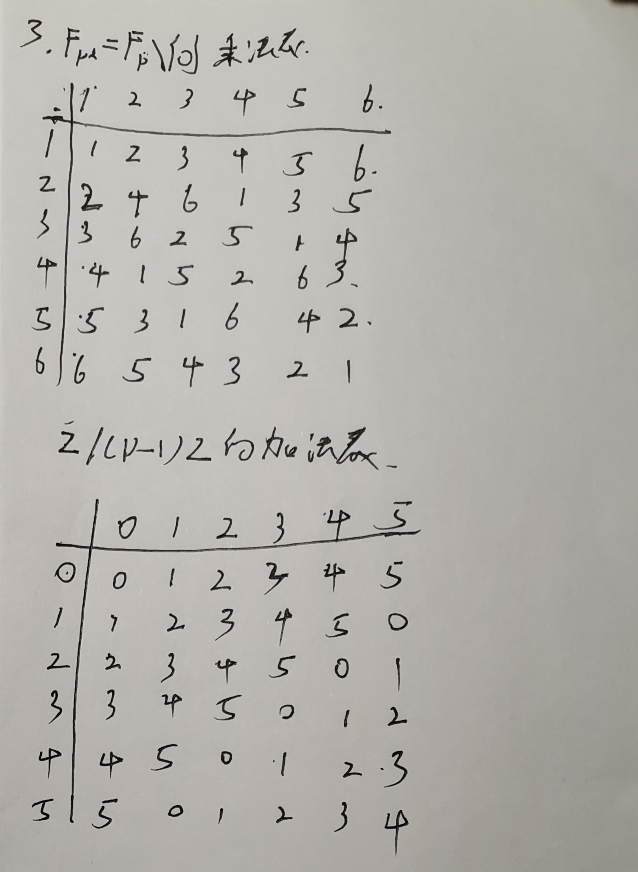 3. Fₚ* = Fₚ\{0} 乘法表.
÷ 1 2 3 4 5 6.
1 1 2 3 4 5 6.
2 2 4 6 1 3 5
3 3 6 2 5 1 4
4 4 1 5 2 6 3.
5 5 3 1 6 4 2.
6 6 5 4 3 2 1
Z/(p-1)Z 的加法表.
0 1 2 3 4 5
0 0 1 2 3 4 5
1 1 2 3 4 5 0
2 2 3 4 5 0 1
3 3 4 5 0 1 2
4 4 5 0 1 2 3
5 5 0 1 2 3 4